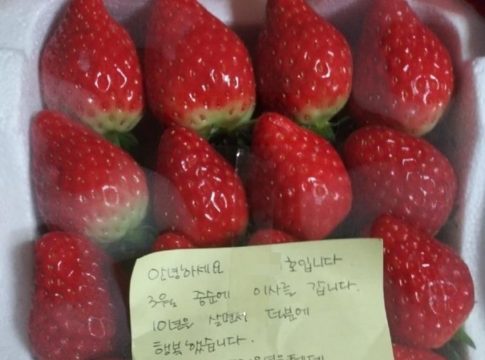 안녕하세요 호입니다
3월 중순에 이사를 갑니다.
10년을 살면서 덕분에
행복했습니다.